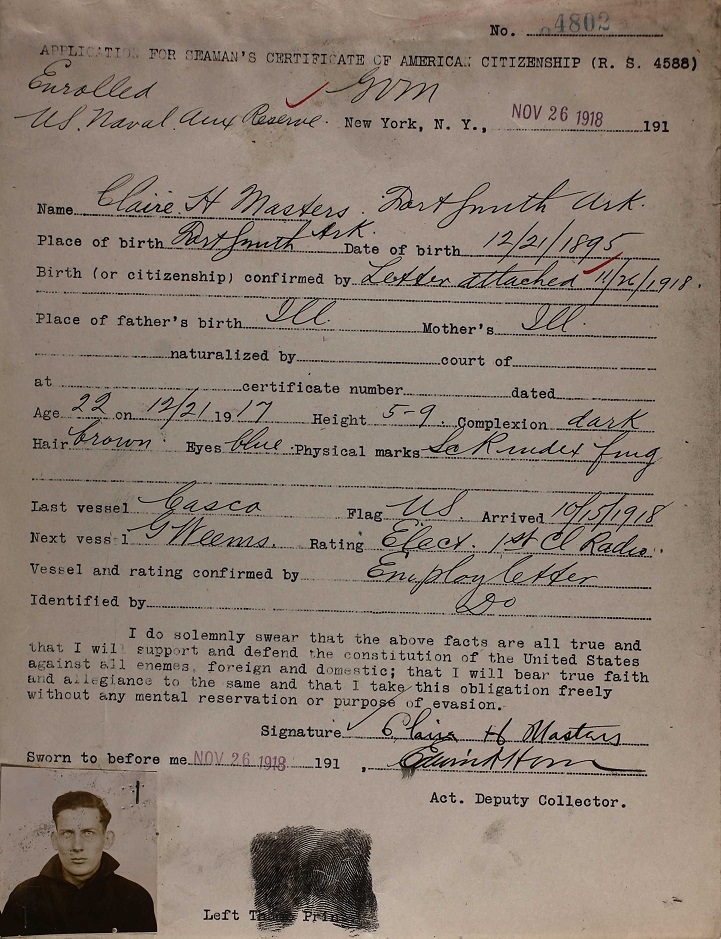 No. 4802
APPLICATION FOR SEAMAN'S CERTIFICATE OF AMERICAN CITIZENSHIP (R. S. 4588)
Enrolled GVM
U.S. Naval Aux Reserve. New York, N. Y., NOV 26 1918 191
Name Claire H Masters. Fort Smith Ark.
Place of birth Fort Smith Ark. Date of birth 12/21/1895
Birth (or citizenship) confirmed by Letter attached 11/26/1918.
Place of father's birth Ill. Mother's Ill.
naturalized by court of
at certificate number dated
Age 22 on 12/21 1917 Height 5-9. Complexion dark
Hair brown. Eyes blue. Physical marks Sc R index fing
Last vessel Casco Flag US. Arrived 10/15/1918
Next vessel G Weems. Rating Elect. 1st Cl Radio.
Vessel and rating confirmed by Employ letter
Identified by Do
I do solemnly swear that the above facts are all true and
that I will support and defend the constitution of the United States
against all enemies, foreign and domestic; that I will bear true faith
and allegiance to the same and that I take this obligation freely
without any mental reservation or purpose of evasion.
Signature Claire H Masters
Sworn to before me NOV 26 1918 191 ,
Act. Deputy Collector.
Left Thumb Print